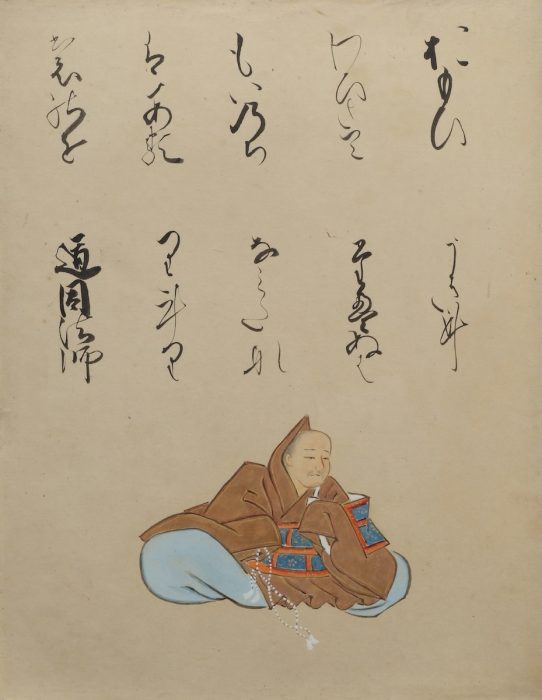 おもひ
わひさて
もいのち
はある
ものを
うきに
たえぬは
なみたな
りけり
道因法師